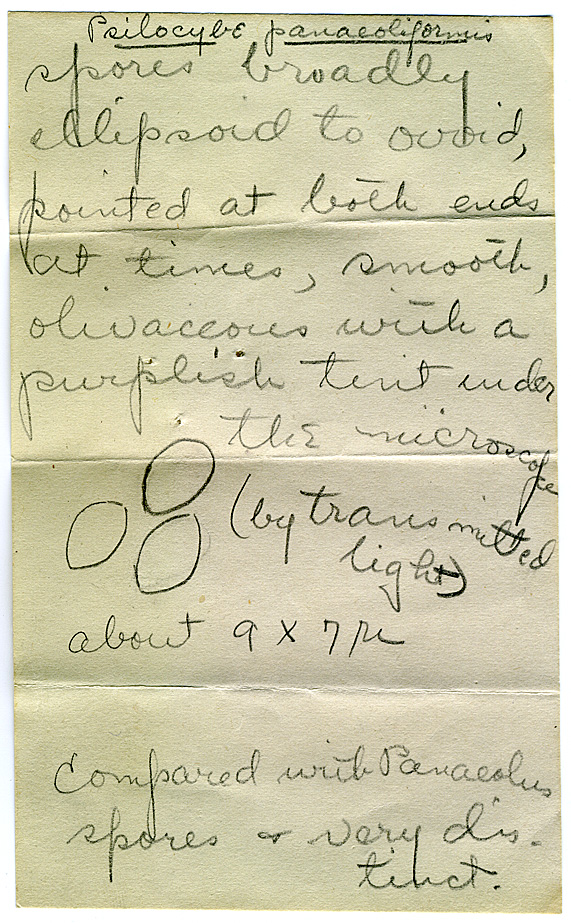 Psilocybe panaeoliformis
spores broadly
ellipsoid to ovoid,
pointed at both ends
at times, smooth,
olivaceous with a
purplish tint under
the microscope
(by transmitted
light)
about 9 x 7 µ
Compared with Panaeolus
spores & very dis-
tinct.